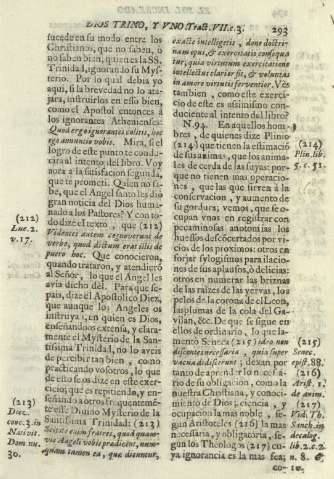 DIOS TRINO, Y VNO. Tract. VII. c. 3. 293
sucede en su modo entre los
Christianos, que no saben, ò
no saben bien, quien es la SS.
Trinidad, ignoran lo su Mys-
terio. Por lo qual debia yo
aqui, si la brevedad no lo ata-
jara, instruirlos en esso bien,
como el Apostol entonces à
los ignorantes Athenienses:
Quod ergo ignorantes colitis, hoc
ego annuncio vobis. Mira, si el
logro de este punto te condu-
zirà al intento del libro. Voy
aora à la satisfacion segunda,
que te prometì. Quien no sa-
be, que el Angel santo les diò
gran noticia del Dios huma-
nado à los Pastores? Y con to-
do dize el texto, que (212)
Videntes autem cognoverunt de
verbo, quod dictum erat illis de
puero hoc. Que conocieron,
quando trataron, y atendieron
al Señor, lo que el Angel les
avia dicho del. Para que se-
pais, dize el Apostolico Diez,
que aunque los Angeles os
instruyan, en quien es Dios,
enseñandoos extensa, y clara-
mente el Mysterio de la San-
tissima Trinidad, no lo aveis
de percibir tan bien, como
practicando vosotros, lo que
de ello se os dize en este exer-
cicio, que es repitiendo, y en-
señando à otros frequenteme-
te esse Divino Mysterio de la
Santissima Trinidad: (213)
Scitote cum fratres, quod quam-
vis Angeli vobis prædicent, num-
quam tamen ea, quæ dicuntur,
(212)
Luc. 2.
v. 17.
(213)
Diez,
conc. 3. in
Nativit.
Dom. nu.
30.
exactè intelligetis, donec doctri-
nam eius, & exercitio consequa-
tur, quia virtutum exercitatione
intellectus clarior fit, & voluntas
in amore virtutis ferventior. Ves
tambien, como este exerci-
cio de este es utilissimo con-
ducente al intento del libro?
N. 94. En aquellos hom-
bres, de quienes dize Plinio
(214) que tienen la estimaciõ
de sus almas, que los anima-
les de cerda de las suyas: por-
que no tienen mas operacio-
nes, que las que sirven à la
conservacion, y aumento de
su gordura; vemos, que se o-
cupan vnos en registrar con
pecaminosas anotomias los
huessos descocertados por vi-
cio de los proximos: otros en
forjar sylogismos para ilacio-
nes de sus aplausos, ò delicias;
otros en numerar las briznas
de las raizes de las yervas, los
pelos de la corona de el Leon,
las plumas de la cola del Ga-
vilan, &c. De que se sigue en
ellos de ordinario, lo que la-
mentò Seneca (215) ideò non
dicentes necessaria, quia super
vacua didicerunt; dexan por
tanto de aprender lo necessa-
rio de su obligacion, como la
nuestra Christiana, y conoci-
miento de Dios; ciencia, y
ocupacion la mas noble, se-
gun Aristoteles (216) la mas
necessaria, y obligatoria, se-
gun los Theologos (217) cu-
ya ignorancia es la mas fea;
co-
(214)
Plin. lib.
5. c. 51.
(215)
Senec.
epist. 88.
(216)
Arist. 1.
de anim.
(217)
Vid. Th.
Sanch. in
decalog.
lib. 2. c. 2.
n. 8. &
10.